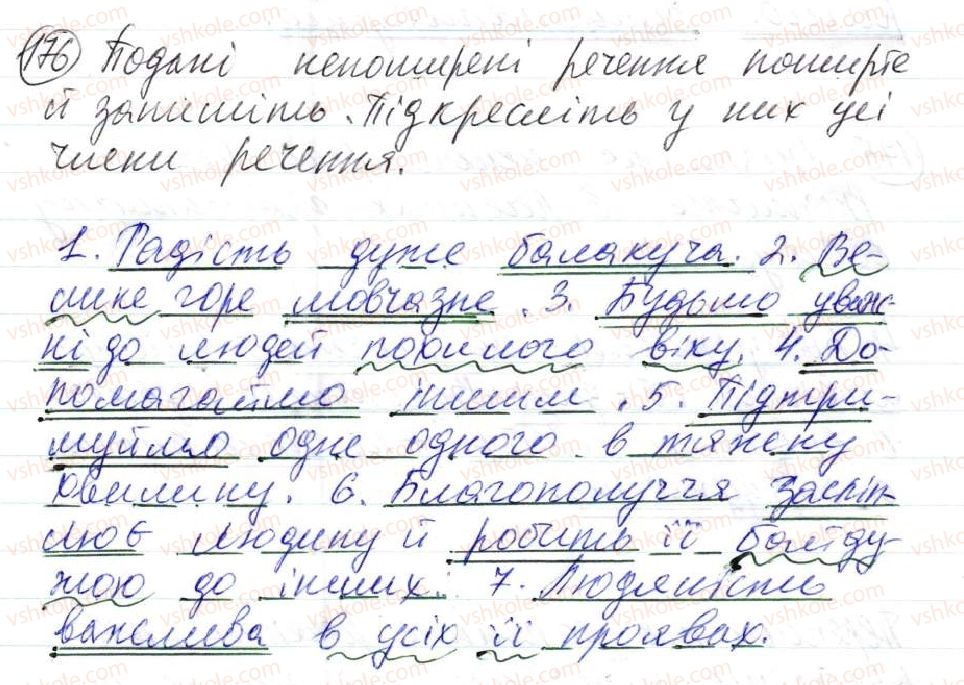 176 Подані непоширені речення поширте
й запишіть. Підкресліть у них усі
члени речення.
1. Радість дуже балакуча. 2. Ве-
лике горе мовчазне. 3. Будьмо уваж-
ні до людей похилого віку. 4. До-
помагаймо іншим. 5. Підтри-
муймо одне одного в тяжку
хвилину. 6. Благополуччя засліп-
лює людину й робить її байду-
жою до інших. 7. Людяність
важлива в усіх її проявах.